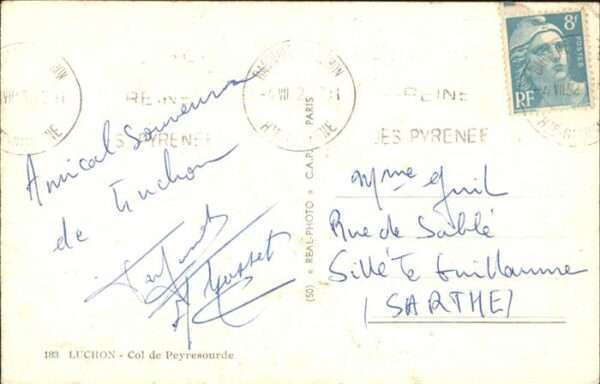 8F
POSTES
RF
REINE
DES PYRENEES
Amical souvenir
de Luchon
Mme Guil
Rue de Sablé
Sillé le Guillaume
(SARTHE)
(50) * REAL-PHOTO * C.A.P. * PARIS
183 LUCHON - Col de Peyresourde